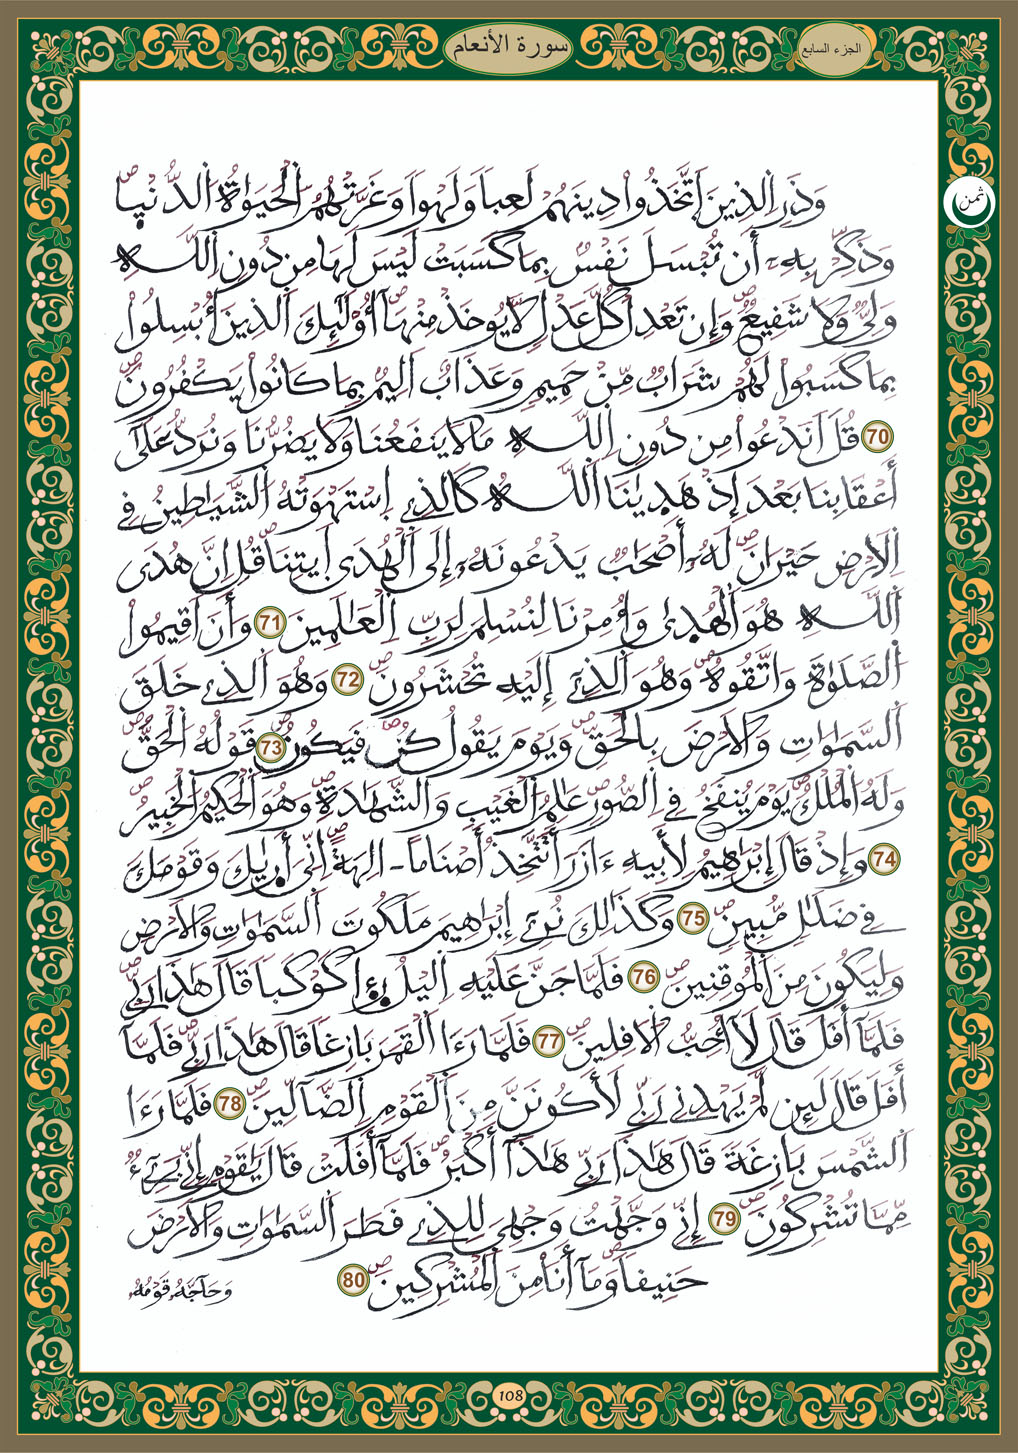 سورة الأنعام
الجزء السابع
ثمن
وَذَرِ اِ۬لذِينَ اَ۪تَّخَذُواْ دِينَهُمْ لَعِباٗ وَلَهْواٗ وَغَرَّتْهُمُ اُ۬لْحَيَوٰةُ اُ۬لدُّنْي۪اۖ
وَذَكِّرْ بِهِۦٓ أَن تُبْسَلَ نَفْسُۢ بِمَا كَسَبَتْ لَيْسَ لَهَا مِن دُونِ اِ۬للَّهِ
وَلِيّٞ وَلَا شَفِيعٞۖ وَإِن تَعْدِلْ كُلَّ عَدْلٖ لَّا يُوخَذْ مِنْهَآۖ أُوْلَٰٓئِكَ اَ۬لذِينَ أُبْسِلُواْ
بِمَا كَسَبُواْ لَهُمْ شَرَابٞ مِّنْ حَمِيمٖ وَعَذَابٌ اَلِيمُۢ بِمَا كَانُواْ يَكْفُرُونَۖ
70 قُلَ اَنَدْعُواْ مِن دُونِ اِ۬للَّهِ مَا لَا يَنفَعُنَا وَلَا يَضُرُّنَا وَنُرَدُّ عَلَىٰٓ
أَعْقَابِنَا بَعْدَ إِذْ هَد۪يٰنَا اَ۬للَّهُ كَالذِے اِ۪سْتَهْوَتْهُ اُ۬لشَّيَٰطِينُ فِے
اِ۬لَارْضِ حَيْرَانَۖ لَهُۥٓ أَصْحَٰبٞ يَدْعُونَهُۥٓ إِلَى اَ۬لْهُدَى اَ۪يتِنَاۖ قُلِ اِنَّ هُدَى
اَ۬للَّهِ هُوَ اَ۬لْهُد۪ىٰ وَأُمِرْنَا لِنُسْلِمَ لِرَبِّ اِ۬لْعَٰلَمِينَ 71 وَأَنَ اَقِيمُواْ
اُ۬لصَّلَوٰةَ وَاتَّقُوهُۖ وَهُوَ اَ۬لذِےٓ إِلَيْهِ تُحْشَرُونَۖ 72 وَهُوَ اَ۬لذِے خَلَقَ
اَ۬لسَّمَٰوَٰتِ وَالَارْضَ بِالْحَقِّۖ وَيَوْمَ يَقُولُ كُنۖ فَيَكُونُۖ 73 قَوْلُهُ اُ۬لْحَقُّۖ
وَلَهُ اُ۬لْمُلْكُۖ يَوْمَ يُنفَخُ فِے اِ۬لصُّورِۖ عَٰلِمُ اُ۬لْغَيْبِ وَالشَّهَٰدَةِۖ وَهُوَ اَ۬لْحَكِيمُ اُ۬لْخَبِيرُۖ
74 وَإِذْ قَالَ إِبْرَٰهِيمُ لِأَبِيهِ ءَازَرَ أَتَتَّخِذُ أَصْنَاماً اٰلِهَةًۖ اِنِّيَ أَر۪يٰكَ وَقَوْمَكَ
فِے ضَلَٰلٖ مُّبِينٖۖ 75 وَكَذَٰلِكَ نُرِےٓ إِبْرَٰهِيمَ مَلَكُوتَ اَ۬لسَّمَٰوَٰتِ وَالَارْضِ
وَلِيَكُونَ مِنَ اَ۬لْمُوقِنِينَۖ 76 فَلَمَّا جَنَّ عَلَيْهِ اِ۬ليْلُ ر۪ء۪ا كَوْكَباٗ قَالَ هَٰذَا رَبِّےۖ
فَلَمَّآ أَفَلَ قَالَ لَآ أُحِبُّ اُ۬لَافِلِينَۖ 77 فَلَمَّا رَءَا اَ۬لْقَمَرَ بَازِغاٗ قَالَ هَٰذَا رَبِّےۖ فَلَمَّآ
أَفَلَ قَالَ لَئِن لَّمْ يَهْدِنِے رَبِّے لَأَكُونَنَّ مِنَ اَ۬لْقَوْمِ اِ۬لضَّآلِّينَۖ 78 فَلَمَّا رَءَا
اَ۬لشَّمْسَ بَازِغَةٗ قَالَ هَٰذَا رَبِّے هَٰذَآ أَكْبَرُۖ فَلَمَّآ أَفَلَتْ قَالَ يَٰقَوْمِ إِنِّے بَرِےٓءٞ
مِّمَّا تُشْرِكُونَۖ 79 إِنِّے وَجَّهْتُ وَجْهِيَ لِلذِے فَطَرَ اَ۬لسَّمَٰوَٰتِ وَالَارْضَ
حَنِيفاٗۖ وَمَآ أَنَا مِنَ اَ۬لْمُشْرِكِينَۖ 80
وَحَآجَّهُۥ قَوْمُهُۥ
108